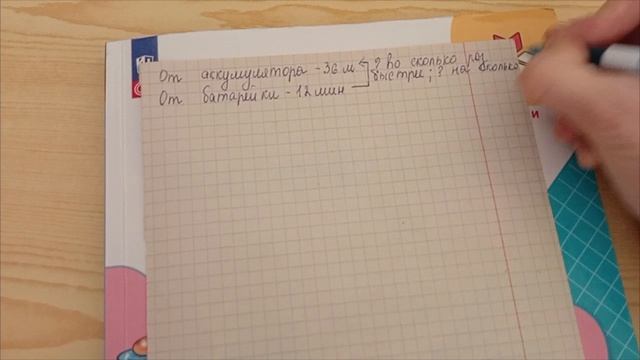 От аккумулятора - 36 м. ? во сколько раз
быстрее; ? на сколько
От батарейки - 12 мин
и